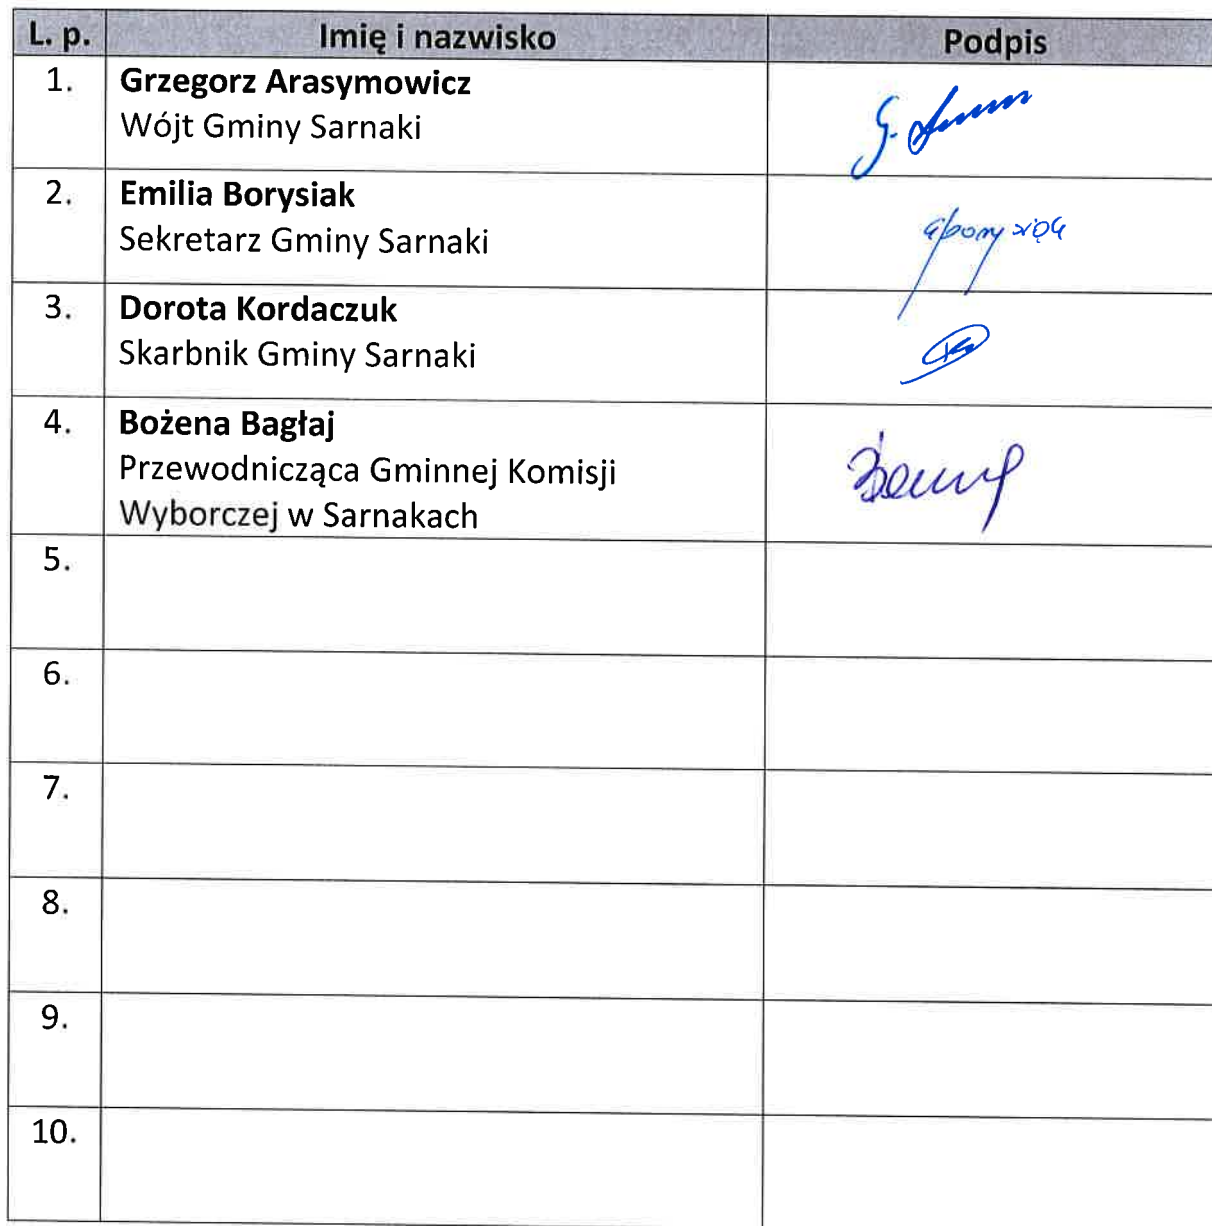 L. p. Imię i nazwisko Podpis
1. Grzegorz Arasymowicz
Wójt Gminy Sarnaki
2. Emilia Borysiak
Sekretarz Gminy Sarnaki
3. Dorota Kordaczuk
Skarbnik Gminy Sarnaki
4. Bożena Bagłaj
Przewodnicząca Gminnej Komisji
Wyborczej w Sarnakach
5.
6.
7.
8.
9.
10.